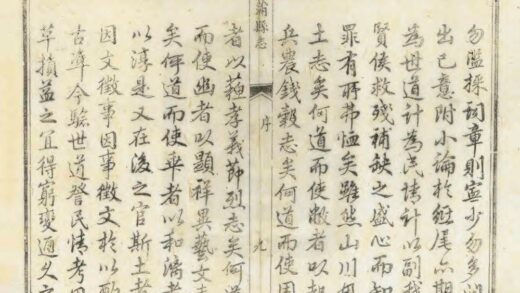 勿濫採詞章則寧少勿多
出己意附小論於尾亦期
為世道計為民情計以副我
賢侯救殘補缺之盛心而知
罪有所弗恤矣雖然山川
土志矣何道而使敝者以起
兵農錢穀志矣何道而使困
縣志
序
九
者以蘇孝義節烈志矣何道
而使幽者以顯祥異藝文志
矣何道而使乖者以和漓者
以淳是又在後之官斯土者
因文徵事因事徵文於以酌
古準今驗世道察民情考
革損益之宜得窮變通久之